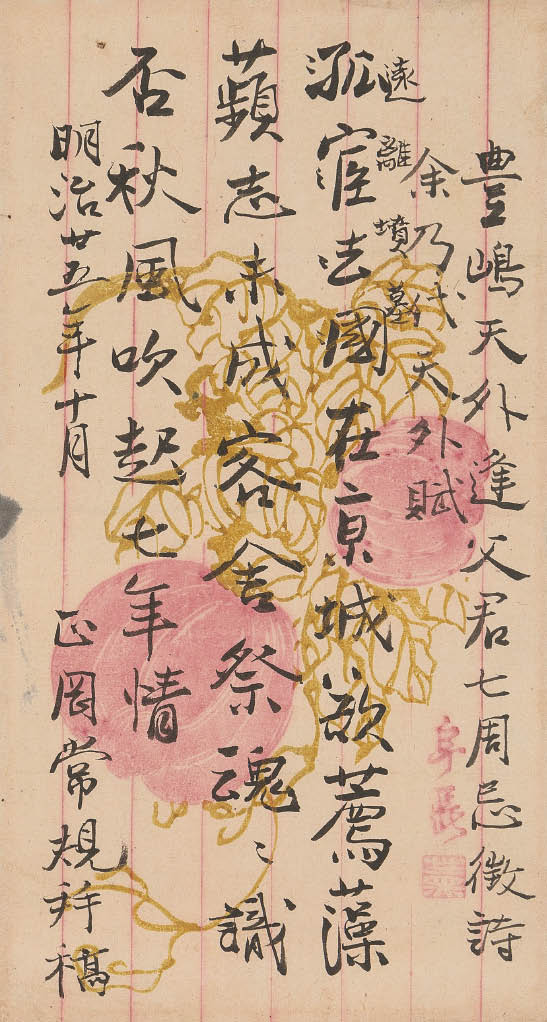 豊嶋天外逢父君七周忌徴詩
余乃代天外賦
遠離墳墓
孤宦去國在亰城欲薦藻
蘋志未成客舍祭魂〻識
否秋風吹起七年情
明治廿五年十月 正岡常規拜稿